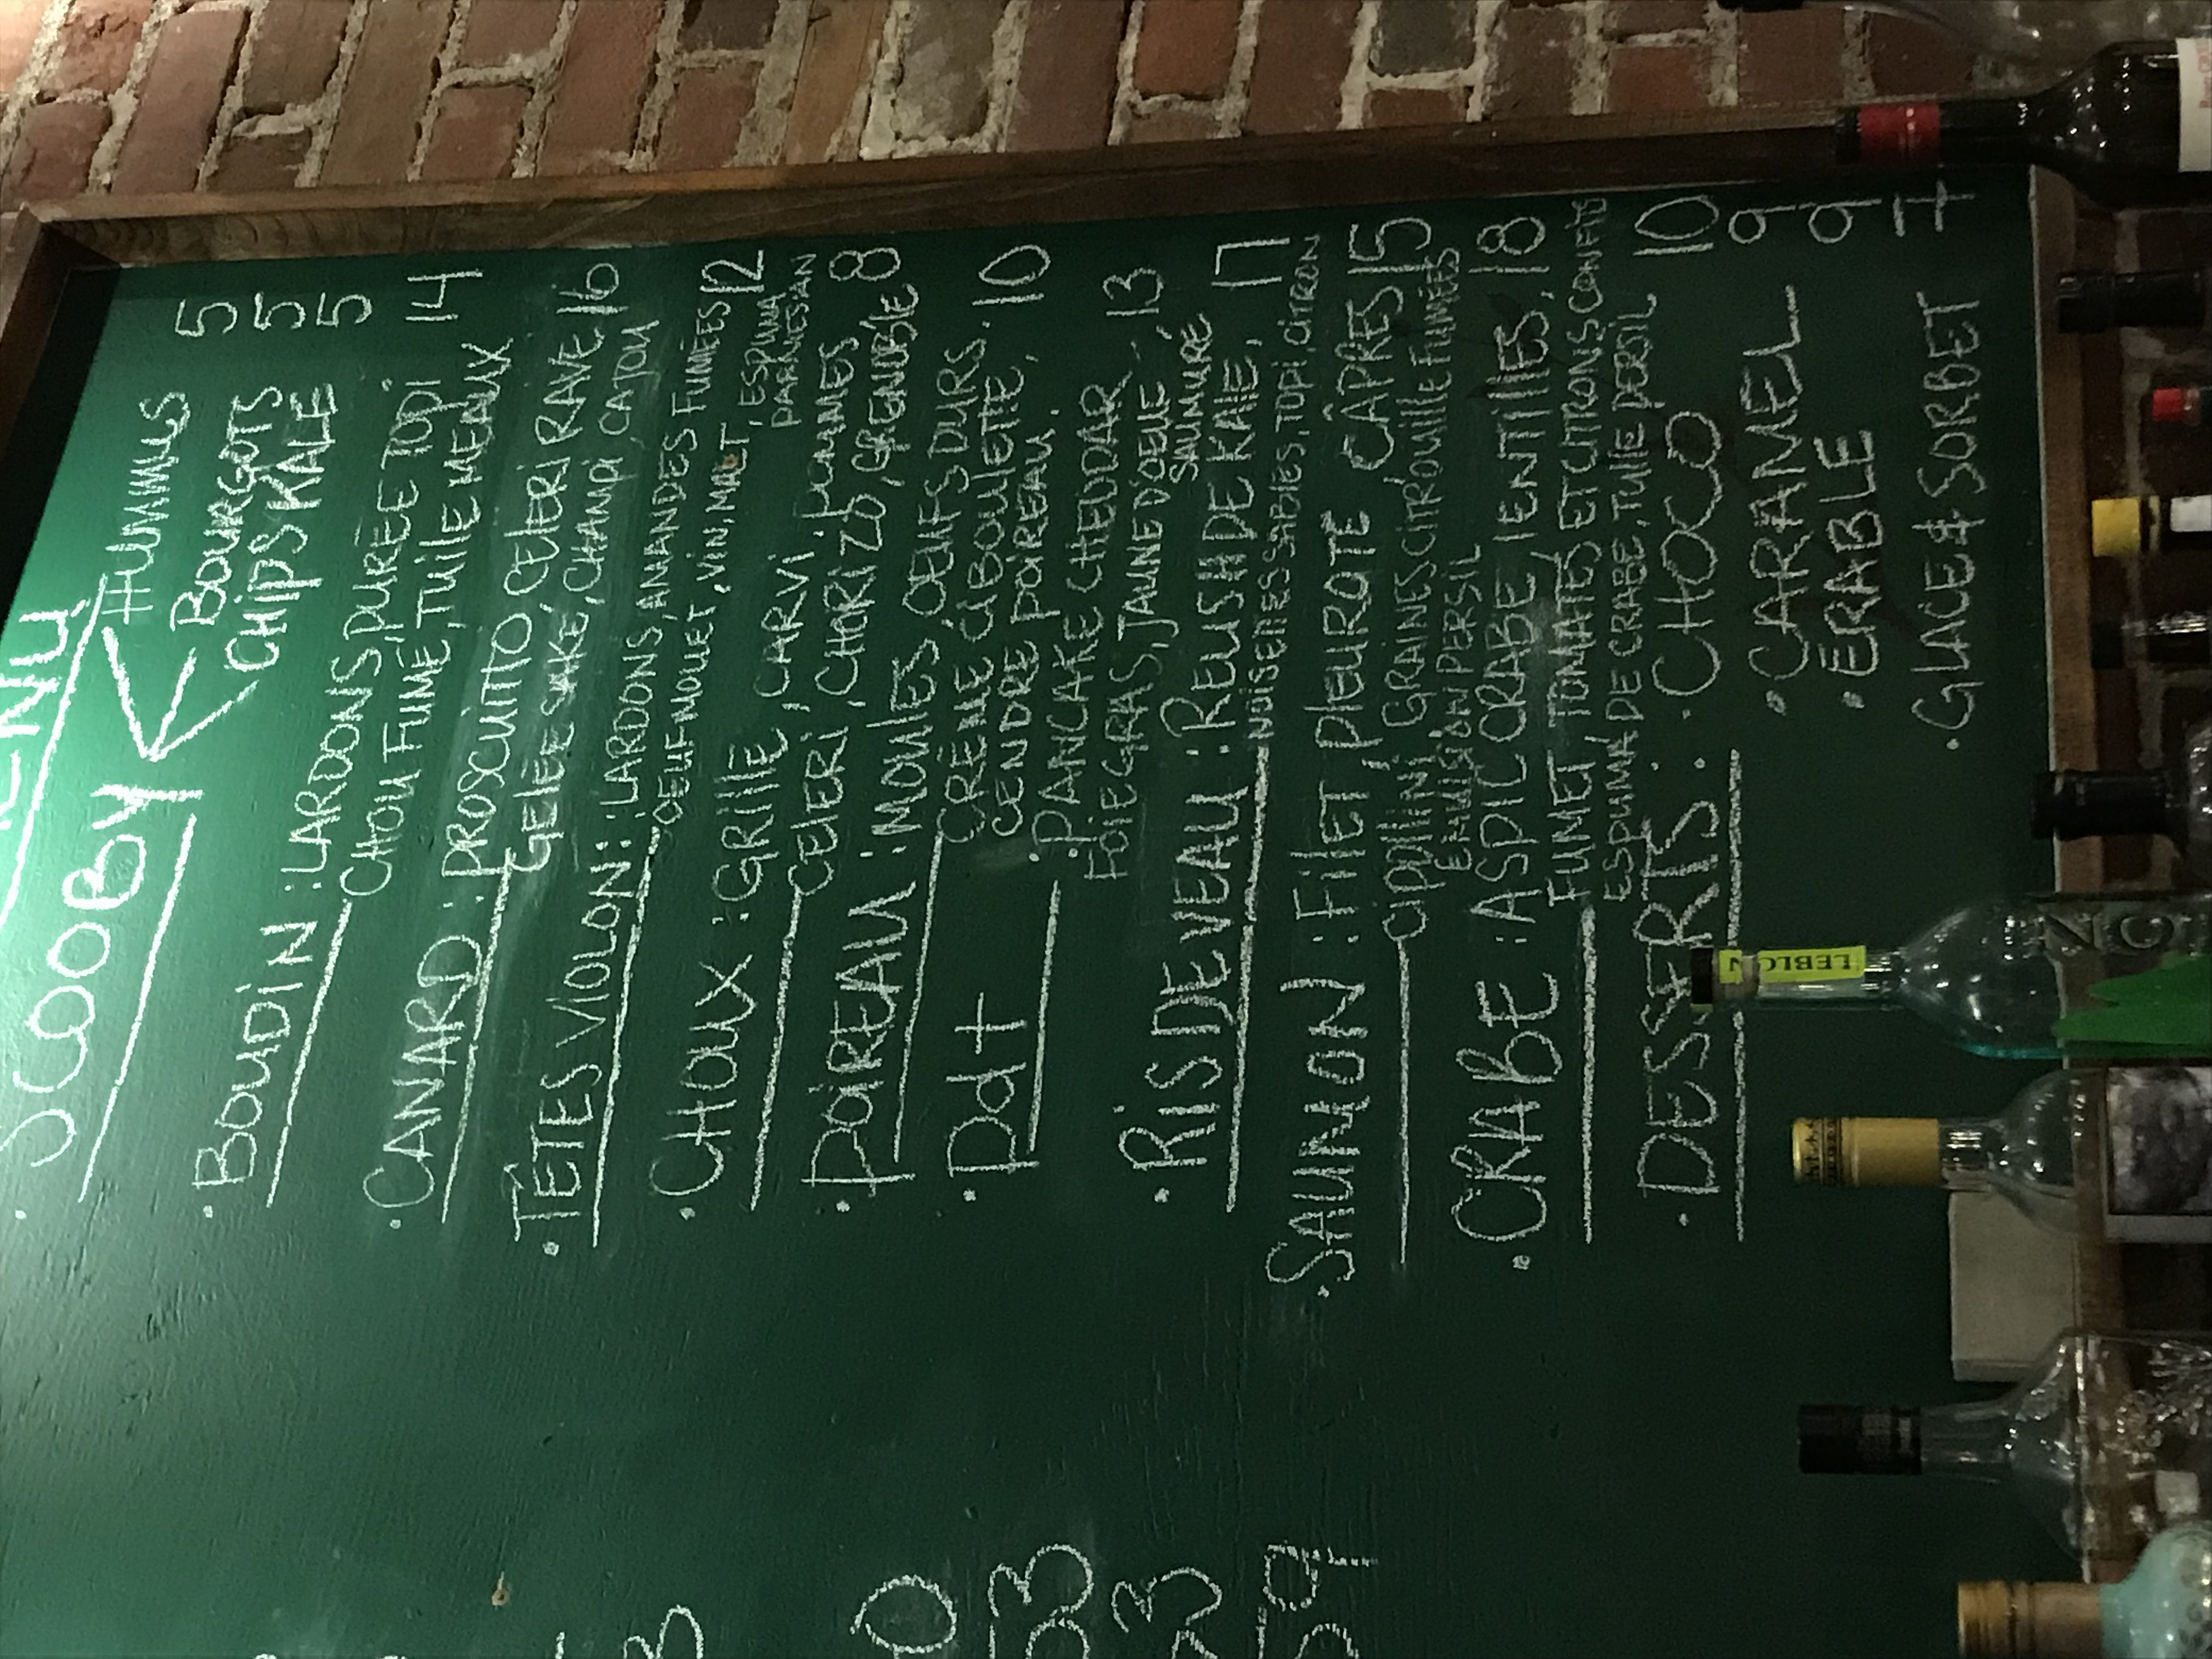 MENU
· SCOOBY HUMMUS 5
BOURGOTS 5
CHIPS KALE 5
· BOUDIN : LARDONS, PURÉE TOPI 14
CHOU FUMÉ, TUILE MEAUX
· CANARD : PROSCUITTO CELERI RAVE 16
GELÉE SAKE, CHAMPI, CAJOU
· TÊTES VIOLON : LARDONS, AMANDES FUMÉES 12
OEUF MOLLET, VIN, MALT, ESPUMA PARMESAN
· CHOUX : GRILLÉ, CARVI, POMMES 8
CELERI, CHORIZO, GRENOBLE
· POIREAU : MOULES, OEUFS DURS. 10
CRÈME CIBOULETTE,
CENDRE POIREAU.
· Pdt · PANCAKE CHEDDAR 13
FOIE GRAS, JAUNE D'OEUF SAUMURÉ
· RIS DE VEAU : RELISH DE KALE, 17
NOISETTES SABLÉES, TOPI, CITRON
· SAUMON : FILET, PLEUROTE CÂPRES 15
CIPPOLINI GRAINES CITROUILLE FUMÉES
EMULSION PERSIL
· CRABE : ASPIC CRABE, LENTILLES, 18
FUMET, TOMATES ET CITRONS CONFITS
ESPUMA DE CRABE, TUILE PERSIL
· DESSERTS : · CHOCO 10
· CARAMEL 9
· ÉRABLE 9
· GLACE & SORBET 7
LEBLON